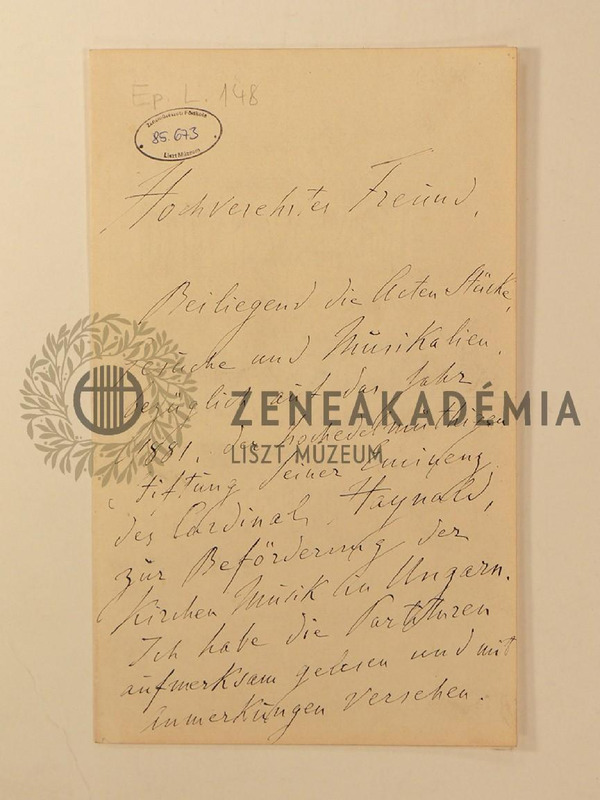 Ep. L. 148
85.673
Liszt Múzeum
Hochverehrter Freund,
Beiliegend die Acten Stücke,
Gesuche und Musikalien,
bezüglich auf das Jahr
1881, der hochedelmüthigen
Stiftung Seiner Eminenz
des Cardinals Haynald,
zur Beförderung der
Kirchen Musik in Ungarn.
Ich habe die Partituren
aufmerksam gelesen und mit
Anmerkungen versehen.
ZENEAKADÉMIA
LISZT MÚZEUM